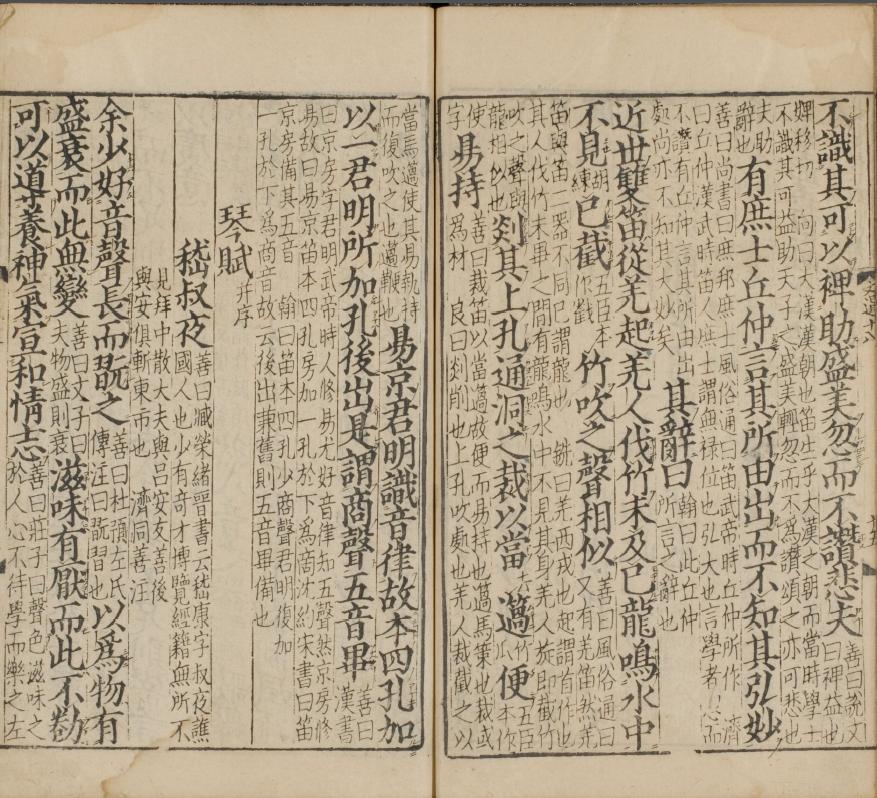 不識其可以裨助盛美忽而不讚悲夫善曰說文曰裨益也
婢移切 向曰大漢漢朝也笛生乎大漢之朝而當時學士
不識其可益助天子之盛美輒忽而不爲讚頌之亦可悲也
夫助辭也有庶士丘仲言其所由出而不知其弘妙
善曰尚書曰無邦庶士風俗通曰笛武帝時丘仲所作 濟
曰丘仲漢武時笛人庶士謂無祿位也弘大也言學者
不讚有丘仲言其所由出處尚亦不知其大妙矣其辭曰翰曰此丘仲所言之辭也
近世雙笛從羌起羌人伐竹未及已龍鳴水中
不見胡練已截五臣本作戳竹吹之聲相似善曰風俗通曰又有羌笛然羌
笛與笛二器不同已謂龍也 銑曰羌西戎也起謂首作也
其人伐竹未畢之間有龍鳴水中不見其身羌人旋即截竹
吹之聲與龍相似也剡其上孔通洞之裁以當簻五臣本作便
使善曰裁笛以當簻故便而易持也簻馬策也裁或
字易持爲材 良曰剡削也上孔吹處也羌人裁截之以
當馬簻使其易執持
而復吹之也簻鞭也易京君明識音律故本四孔加
以一君明所加孔後出是謂商聲五音畢善曰漢書
曰京房字君明武帝時人修易尤好音律知五聲然京房修
易故曰易京笛本四孔房加一孔於下爲商沈約宋書曰笛
京房備其五音 翰曰笛本四孔少商聲君明復加
一孔於下爲商音故云後出兼舊則五音畢備也
琴賦并序
嵇叔夜善曰臧榮緒晉書云嵇康字叔夜譙
國人也少有奇才博覽經籍無所不
見拜中散大夫與呂安友善後
與安俱斬東市也 濟同善注
余少好音聲長而翫之善曰杜預左氏傳注曰翫習也以爲物有
盛衰而此無變善曰文子曰夫物盛則衰滋味有厭而此不勌
可以導養神氣宣和情志善曰莊子曰聲色滋味之於人心不待學而樂之左